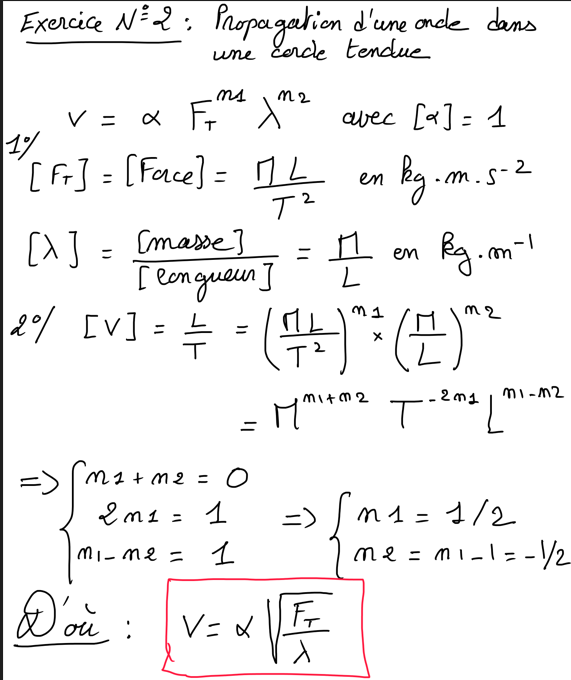 Exercice N° 2 : Propagation d'une onde dans
une corde tendue
V = α F_T^{n1} λ^{n2} avec [α] = 1
1°/
[F_T] = [Force] = \frac{ML}{T^2} en kg.m.s^{-2}
[λ] = \frac{[masse]}{[longueur]} = \frac{M}{L} en kg.m^{-1}
2°/ [V] = \frac{L}{T} = (\frac{ML}{T^2})^{n1} × (\frac{M}{L})^{n2}
= M^{n1+n2} T^{-2n1} L^{n1-n2}
=> { n1 + n2 = 0
2n1 = 1 => { n1 = 1/2
n1 - n2 = 1 n2 = n1 - 1 = -1/2
D'où : V = α \sqrt{\frac{F_T}{λ}}